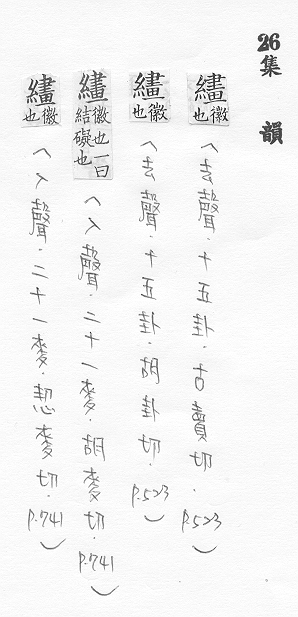 26集 韻
繣徽也（去聲．十五卦．古賣切．P.523）
繣徽也（去聲．十五卦．胡卦切．P.523）
繣徽也一曰結礙也（入聲．二十一麥．胡麥切．P.741）
繣徽也（入聲．二十一麥．㓤麥切．P.741）